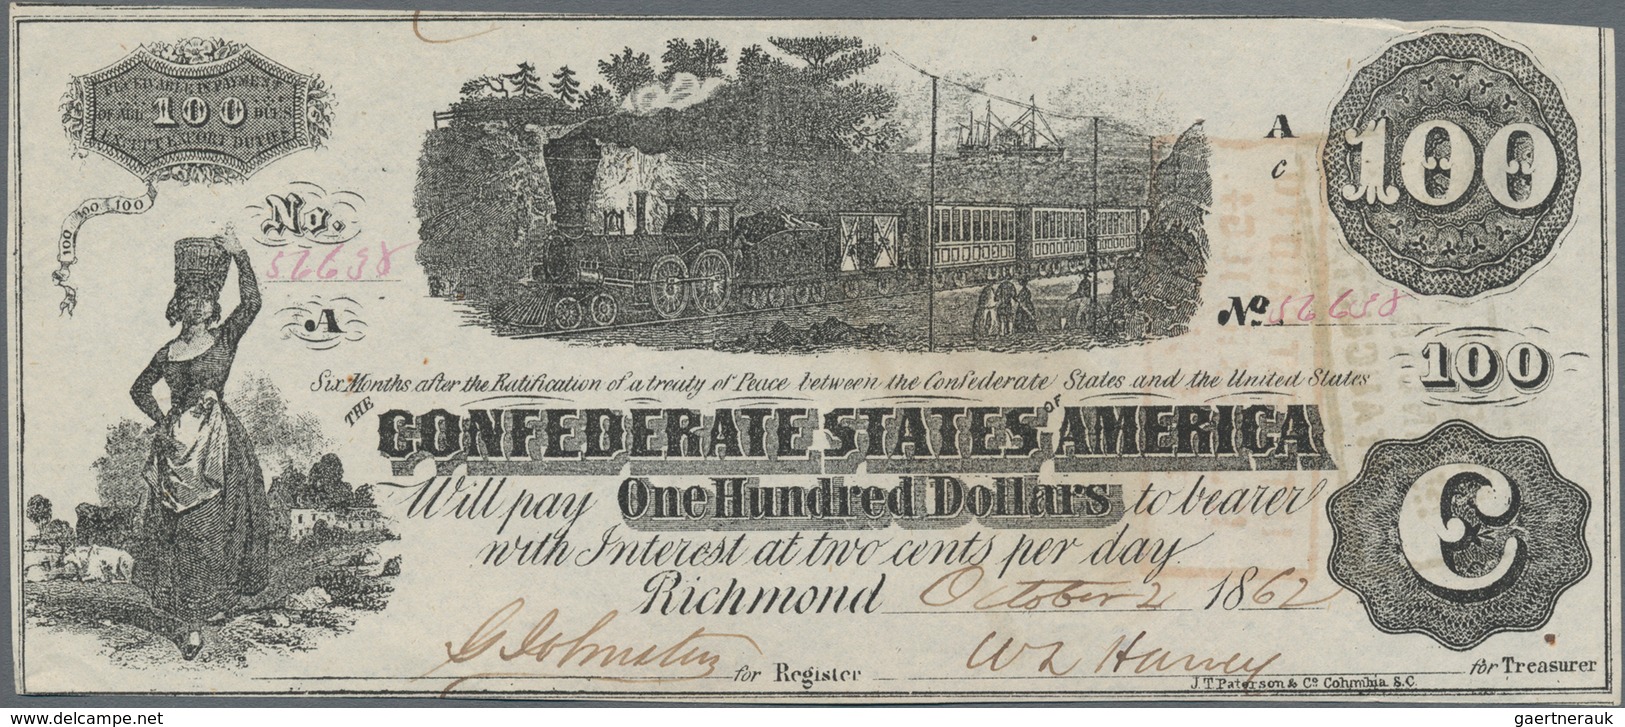 RECEIVABLE IN PAYMENT
OF ALL 100 DUES
EXCEPT EXPORT DUTIES
100 100 100
No.
56638
A
A
c
100
No 56638
100
Six Months after the Ratification of a treaty of Peace between the Confederate States and the United States
THE CONFEDERATE STATES OF AMERICA
Will pay One Hundred Dollars to bearer
with Interest at two cents per day.
Richmond October 2 1862
C
G Johnston for Register W L Harvey for Treasurer
J.T. Paterson & Co Columbia S.C.
www.delcampe.net
gaertnerauk